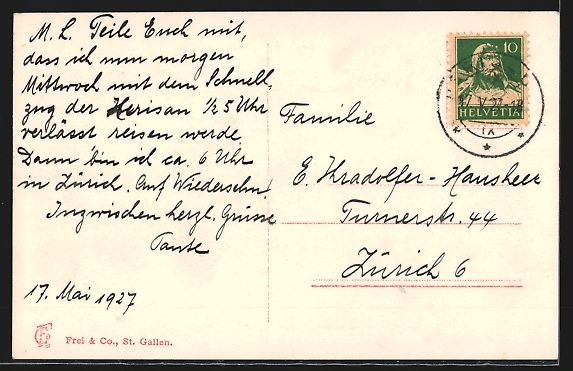 M. L. Teile Euch mit,
dass ich nun morgen
Mittwoch mit dem Schnell-
zug der Herisau ½ 5 Uhr
verlässt reisen werde.
Dann bin ich ca. 6 Uhr
in Zürich. Auf Wiedersehn!
Inzwischen herzl. Grüsse
Tante
17. Mai 1927
Frei & Co., St. Gallen.
10
HELVETIA
Familie
E. Kradolfer-Hausheer
Turnerstr. 44
Zürich 6